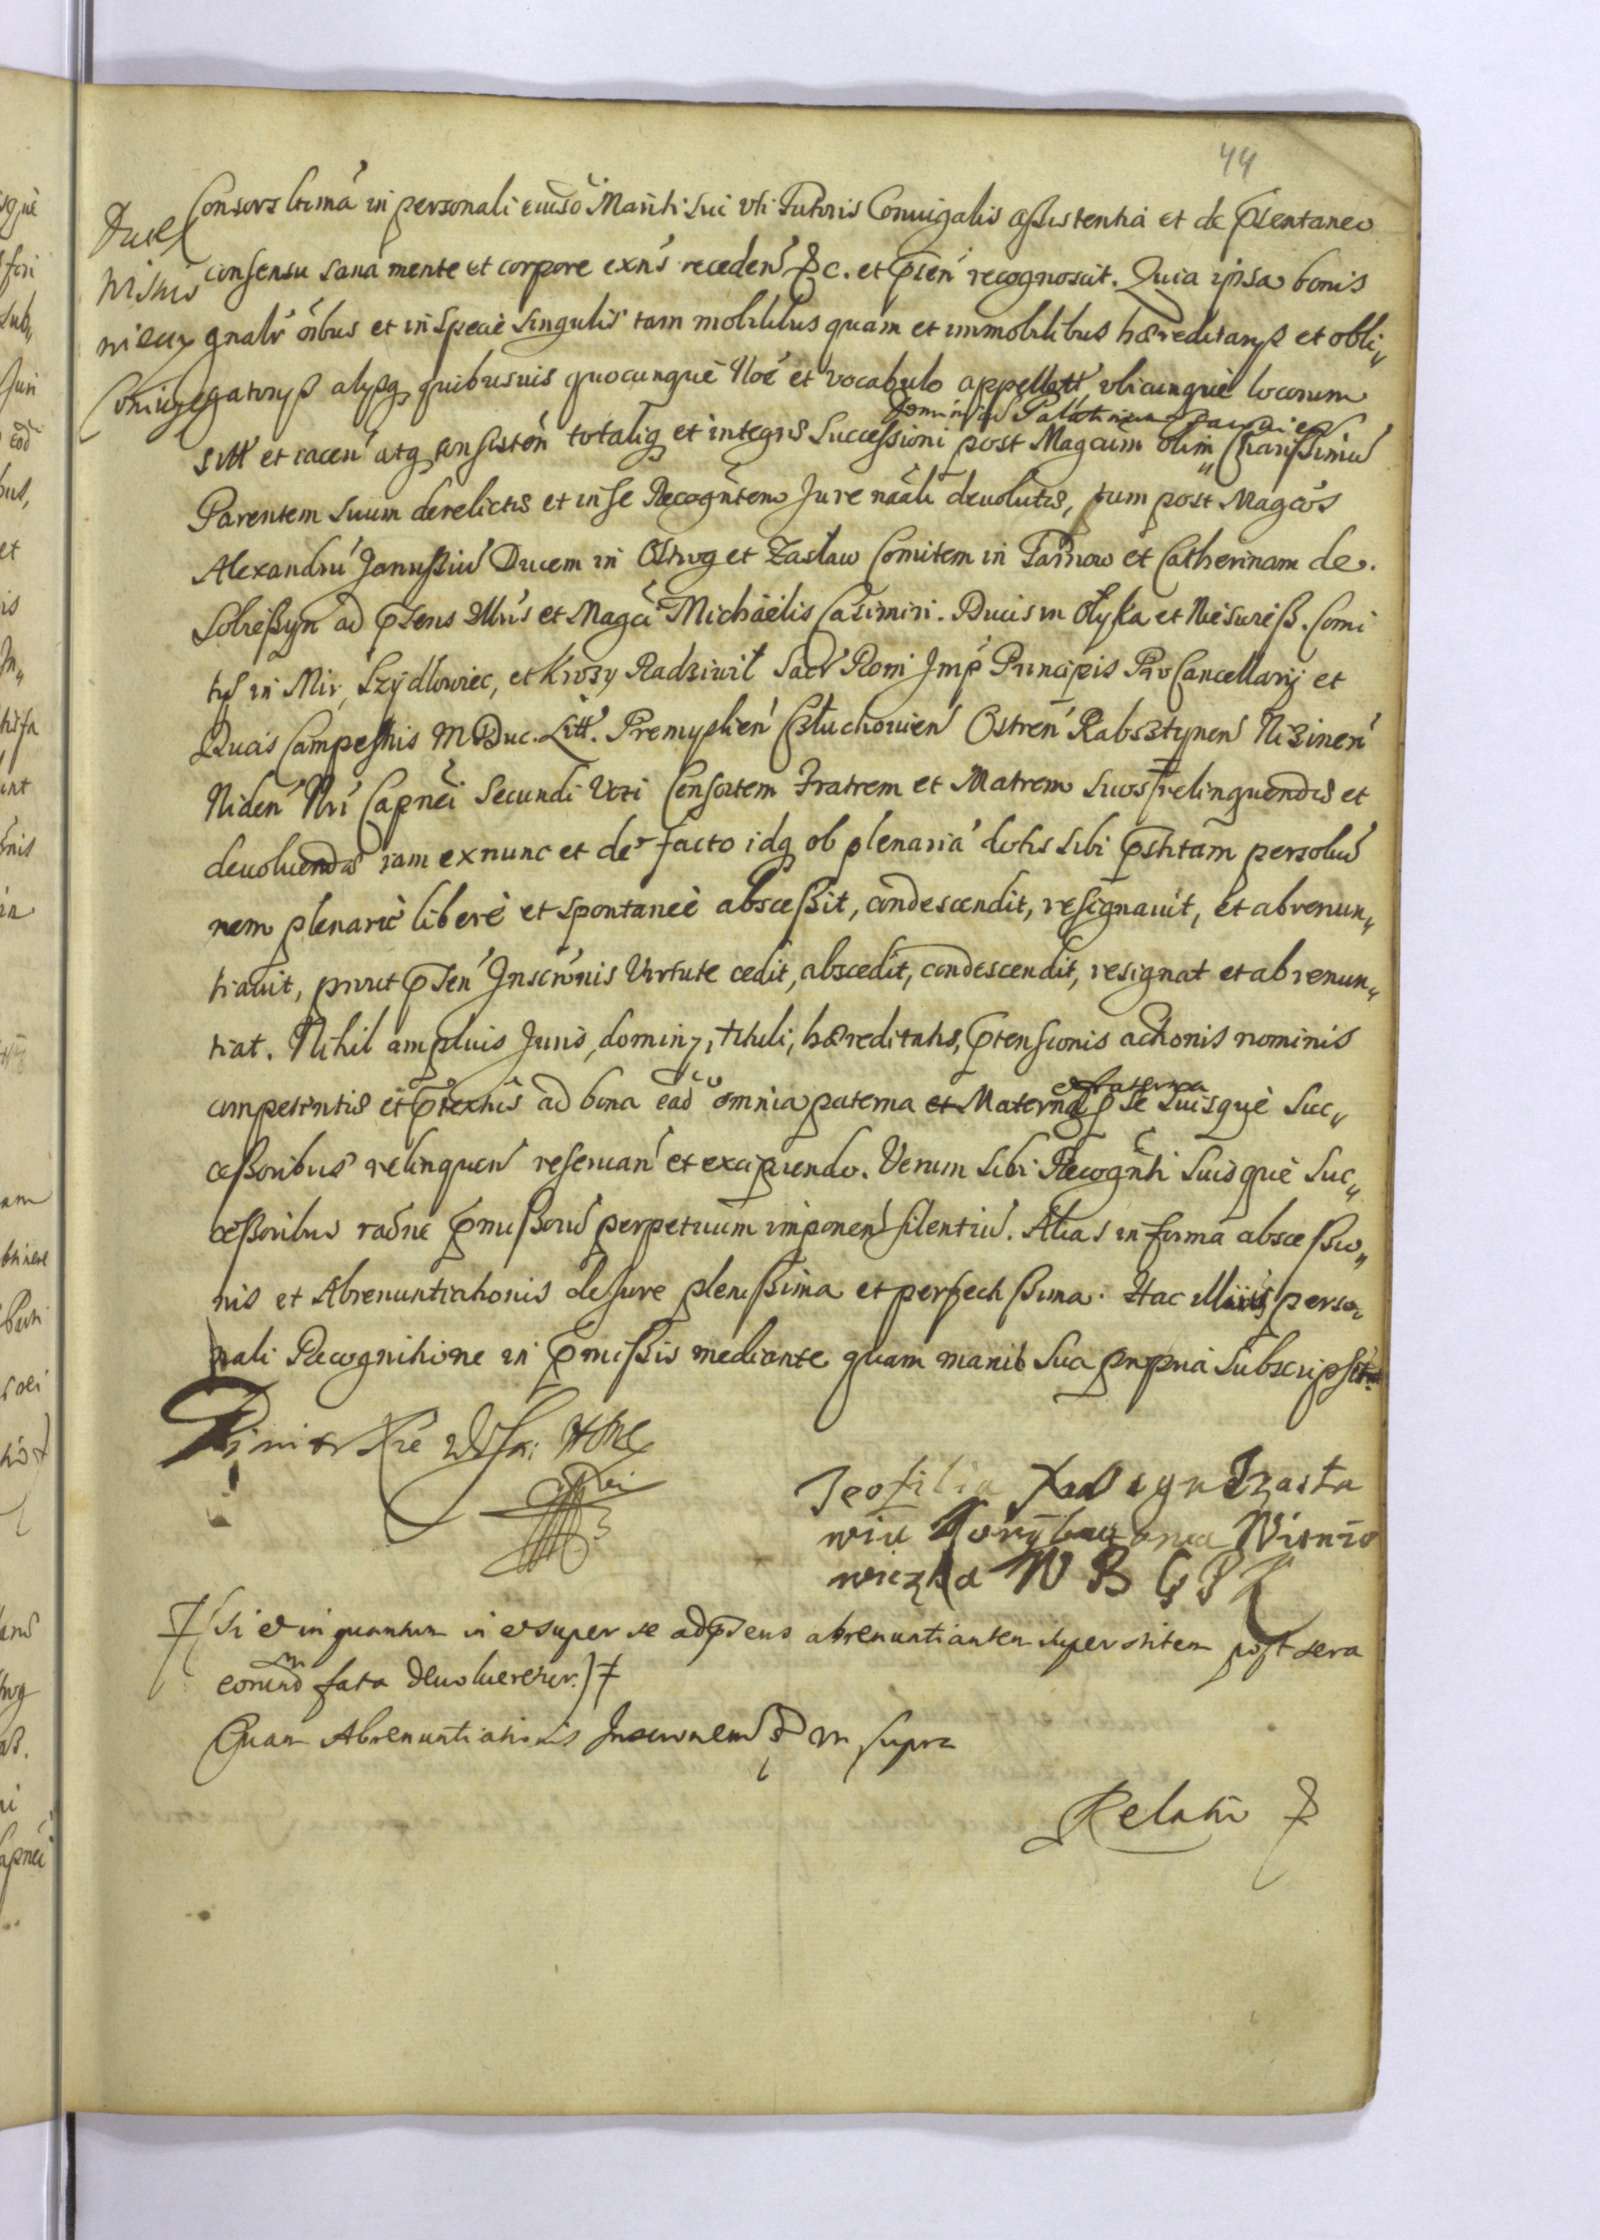 44
Consors ltima in personali eiusd Mariti sui uti Tutoris Coniugalis assistentia et de psentaneo
Ducex
consensu sana mente et corpore exns recedens &c. et psen recognoscit. Quia ipsa bonis
Wisnio
gnalr oibus et in specie singulis tam mobilibus quam et immobilibus hæreditarys et obli„
wiecz
gatorys alysq quibusuis quocunque Noe et vocabulo appellatt ubicunque locorum
Coniuge
Dominicum Palatinum
sitt et iacen atq consisten totaliq et integris Successioni post Magcum olim „ Charissimu
Parentem suum derelictis et in se Recognten Jure naali deuolutis, tum post Magcos
Alexandru Janussiu Ducem in Ostrog et Zasław Comitem in Tarnow et Catherinam de
Sobieszyn ad psens Illris et Magci Michaelis Casimiri Ducis in Ołyka et Nieswieß. Comi
tis in Mir, Szydlowiec, et Krozy Radziwił Sacr Romi Imp Principis ProCancellarij et
Ducis Campestris M Duc. Litt. Premyslien Człuchouien Ostren Rabsztynen Nizinen
Niden Nri Capnei Secundi Voti Consortem Fratrem et Matrem suos ‡ relinquendis et
deuoluendis iam exnunc et de facto idq ob plenaria dotis sibi pstitam persolu
nem plenarie libere et spontanee abscessit, condescendit, resignauit, et abrenun„
tiauit, prout psen Inscronis Virtute cedit, abscedit, condescendit, resignat et abrenun„
tiat. Nihil amplius Juris, dominy, tituli, hæreditatis, ptensionis actionis nominis
et fraterna
competentis et ptextus ad bona ead omnia paterna et Materna p se suisque Suc„
cessoribus relinquen reseruan et excipiendo. Verum sibi Recognti Suisque Suc„
cessoribus raone pmissoru perpetuum imponen silentiu. Alias in forma abscessio„
nis et Abrenuntiationis de Jure plenissima et perfectissima. Hac illius perso„
nali Recognitione in pmissis mediante quam manib sua propria subscripsit.
Dimitr Xie
Teofilia Xna Zasła
wiu Korybutowa Wisnio
wiezka W B G P K
‡ (si et in quantum in et super se ad psens abrenuntiantem superstitem post sera
eorund fata deuolueretur.) ‡
Quam Abrenuntiationis Inscronem & ut supra
Relatio &